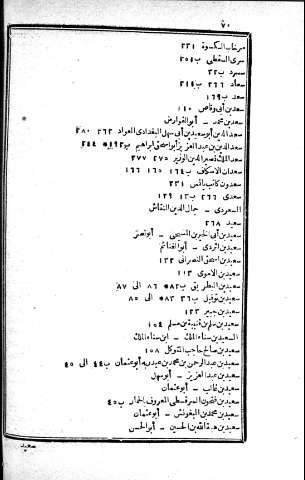 ٧٠
سرى السقطى ب ٢٥٤
سرد ب ٢٢
سعاد ٢٦٦
سعد ب ١٦٩
سعد بن أبى وقاص ١١٠
سعد بن محمد - أبو الفوارض
سعد الدين أبو سعيد بن أبى سهل البغدادى العواد ٢٦٣ ٢٨٠
سعد الدين بن عبد العزيز أبو اسحق ابراهيم ب ١٩٢* ٢٤٤
سعد الملك نصير الدين الوزير ٢٧٥ ٢٧٧
سعدان الاسكاف ب ١٦٤ ١٦٥ ١٦٦
سعدون كاتب يانس ٢٣١
سعدى ٢٦٦ ب ١٢ ١٢٩
السعودى - جمال الدين النقاش
سعيد ٢٦٨
سعيد بن أبى الخير بن المسيحى - أبو نصر
سعيد بن أثردى - أبو الغنائم
سعيد بن اسحق النصرانى ١٢٢
سعيد بن الاموى ١١٣
سعيد بن البطريق ب ٨٢* ٨٦ الى ٨٧
سعيد بن توفيل ب ٣٦ ٨٣* الى ٨٥
سعيد بن جبير ١٢٣
سعيد بن سلم بن قتيبة بن مسلم ١٥٤
السعيد بن سناء الملك - ابن سناء الملك
سعيد بن صالح حاجب المتوكل ١٥٨
سعيد بن عبد الرحمن بن محمد بن عبد ربه أبو عثمان ب ٤٤ الى ٤٥
سعيد بن عبد العزيز - أبو سهل
سعيد بن غالب - أبو عثمان
سعيد بن فتحون السرقسطى المعروف بالحمار ب ٤٥
سعيد بن محمد بن البغونش - أبو عثمان
سعيد بن هبة الله بن الحسين - أبو الحسن
سعيد